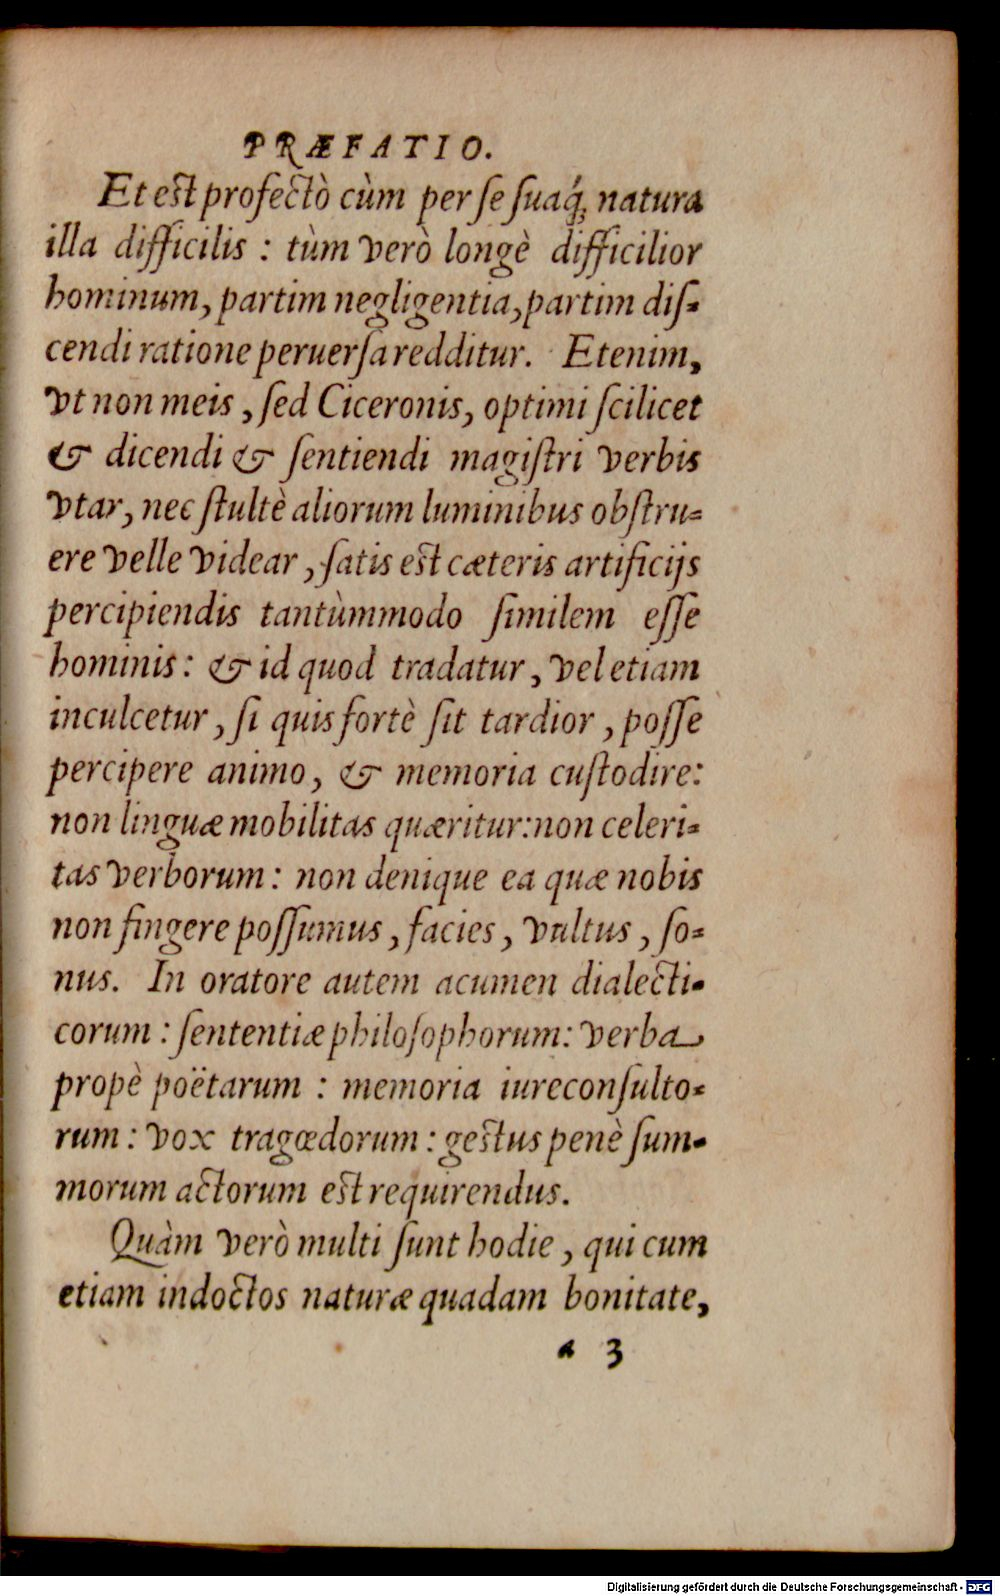 PRÆFATIO.
Et est profectò cùm per se suaq́; natura
illa difficilis : tùm verò longè difficilior
hominum, partim negligentia, partim dis-
cendi ratione peruersa redditur. Etenim,
vt non meis, sed Ciceronis, optimi scilicet
& dicendi & sentiendi magistri verbis
vtar, nec stultè aliorum luminibus obstru-
ere velle videar, satis est cæteris artificijs
percipiendis tantùmmodo similem esse
hominis: & id quod tradatur, vel etiam
inculcetur, si quis fortè sit tardior, posse
percipere animo, & memoria custodire:
non linguæ mobilitas quæritur: non celeri-
tas verborum: non denique ea quæ nobis
non fingere possumus, facies, vultus, so-
nus. In oratore autem acumen dialecti-
corum : sententiæ philosophorum: verba
propè poëtarum : memoria iureconsulto-
rum : vox tragœdorum : gestus penè sum-
morum actorum est requirendus.
Quàm verò multi sunt hodie, qui cum
etiam indoctos naturæ quadam bonitate,
a 3
Digitalisierung gefördert durch die Deutsche Forschungsgemeinschaft - DFG